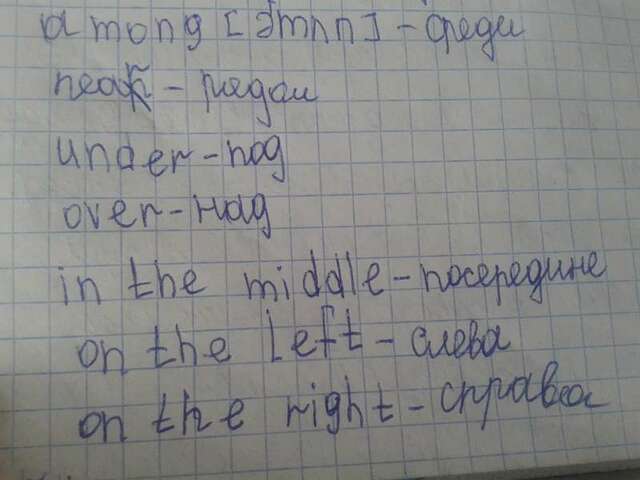 among [əmʌŋ] - среди
near - рядом
under - под
over - над
in the middle - посередине
on the left - слева
on the right - справа